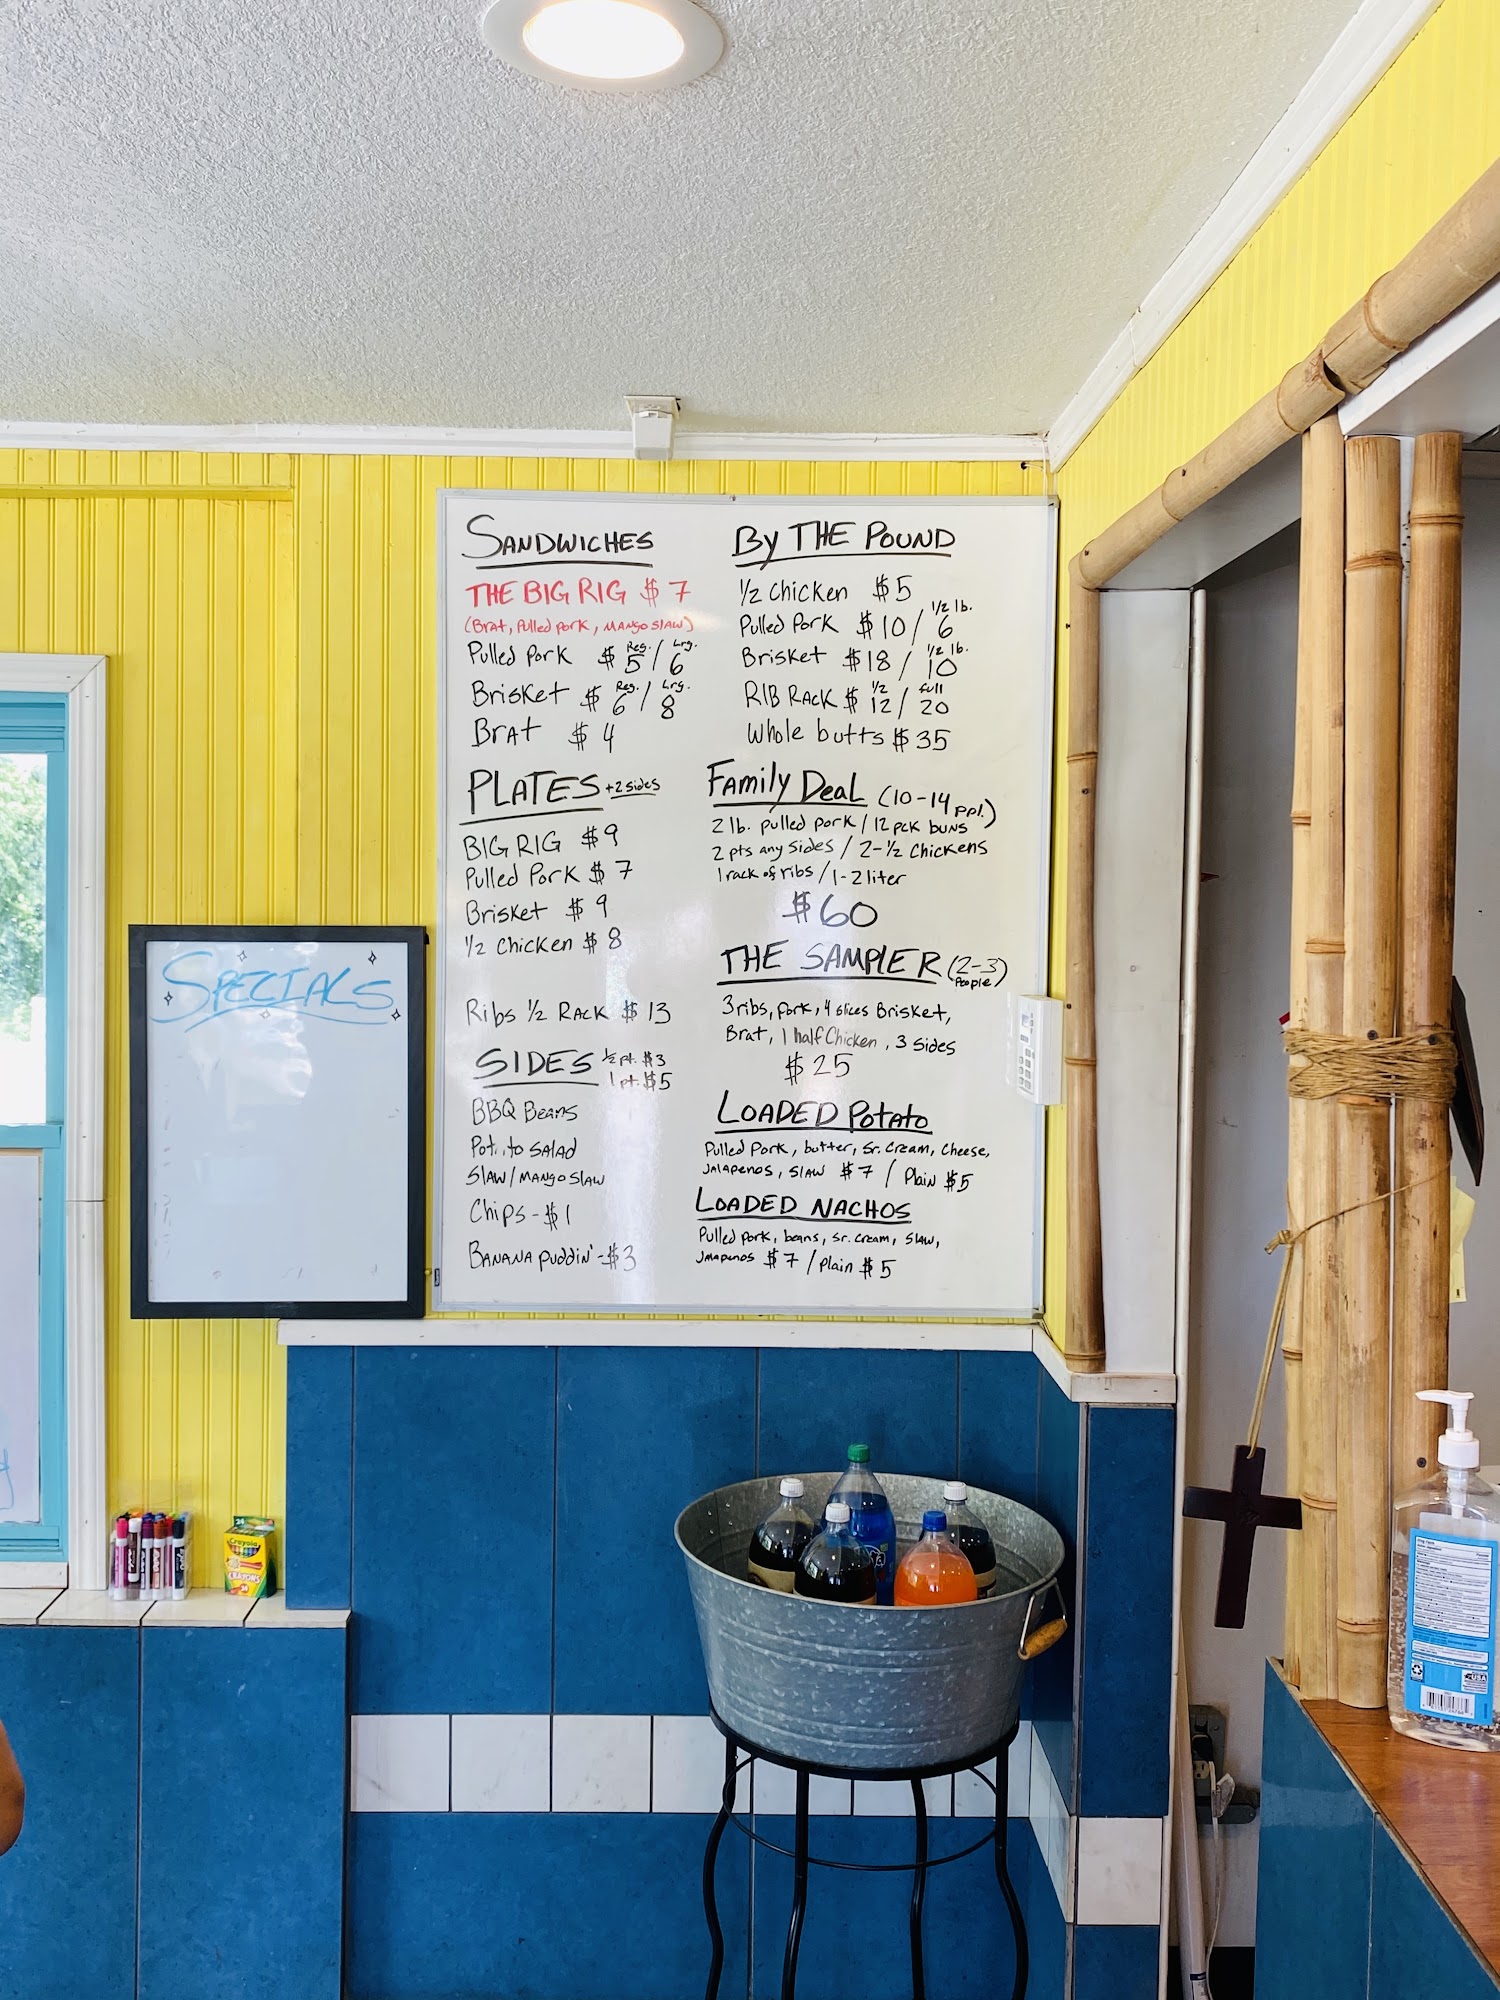 SANDWICHES
THE BIG RIG $7
(Brat, Pulled Pork, MANGO SLAW)
Pulled Pork $ Reg. 5 / Lrg. 6
Brisket $ Reg. 6 / Lrg. 8
Brat $4
PLATES +2 sides
BIG RIG $9
Pulled Pork $7
Brisket $9
1/2 Chicken $8
Ribs 1/2 RACK $13
SIDES 1/2 pt. $3
1 pt. $5
BBQ Beans
Pot..to SALAD
SLAW/MANGO SLAW
Chips-$1
BANANA Puddin'-$3
By THE POUND
1/2 Chicken $5
Pulled Pork $10/ 1/2 lb. 6
Brisket $18 / 1/2 lb. 10
RIB RACK $ 1/2 12 / full 20
Whole butts $35
Family Deal (10-14 ppl.)
2 lb. pulled pork / 12 pck buns
2 pts any sides / 2-1/2 Chickens
1 rack of ribs / 1-2 liter
$60
THE SAMPLER (2-3 People)
3 ribs, pork, 4 slices Brisket,
Brat, 1 half Chicken, 3 sides
$25
LOADED Potato
Pulled Pork, butter, Sr. Cream, Cheese,
JALAPENOS, SLAW $7 / Plain $5
LOADED NACHOS
Pulled pork, beans, sr. cream, slaw,
JALAPENOS $7 / Plain $5
SPECIALS
Crayola
CRAYONS
24